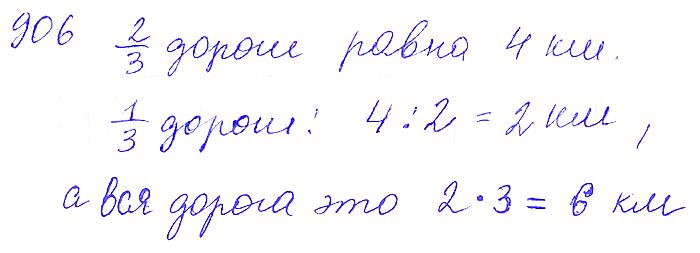 906 2/3 дороги равна 4 км.
1/3 дороги: 4 : 2 = 2 км,
а вся дорога это 2 · 3 = 6 км